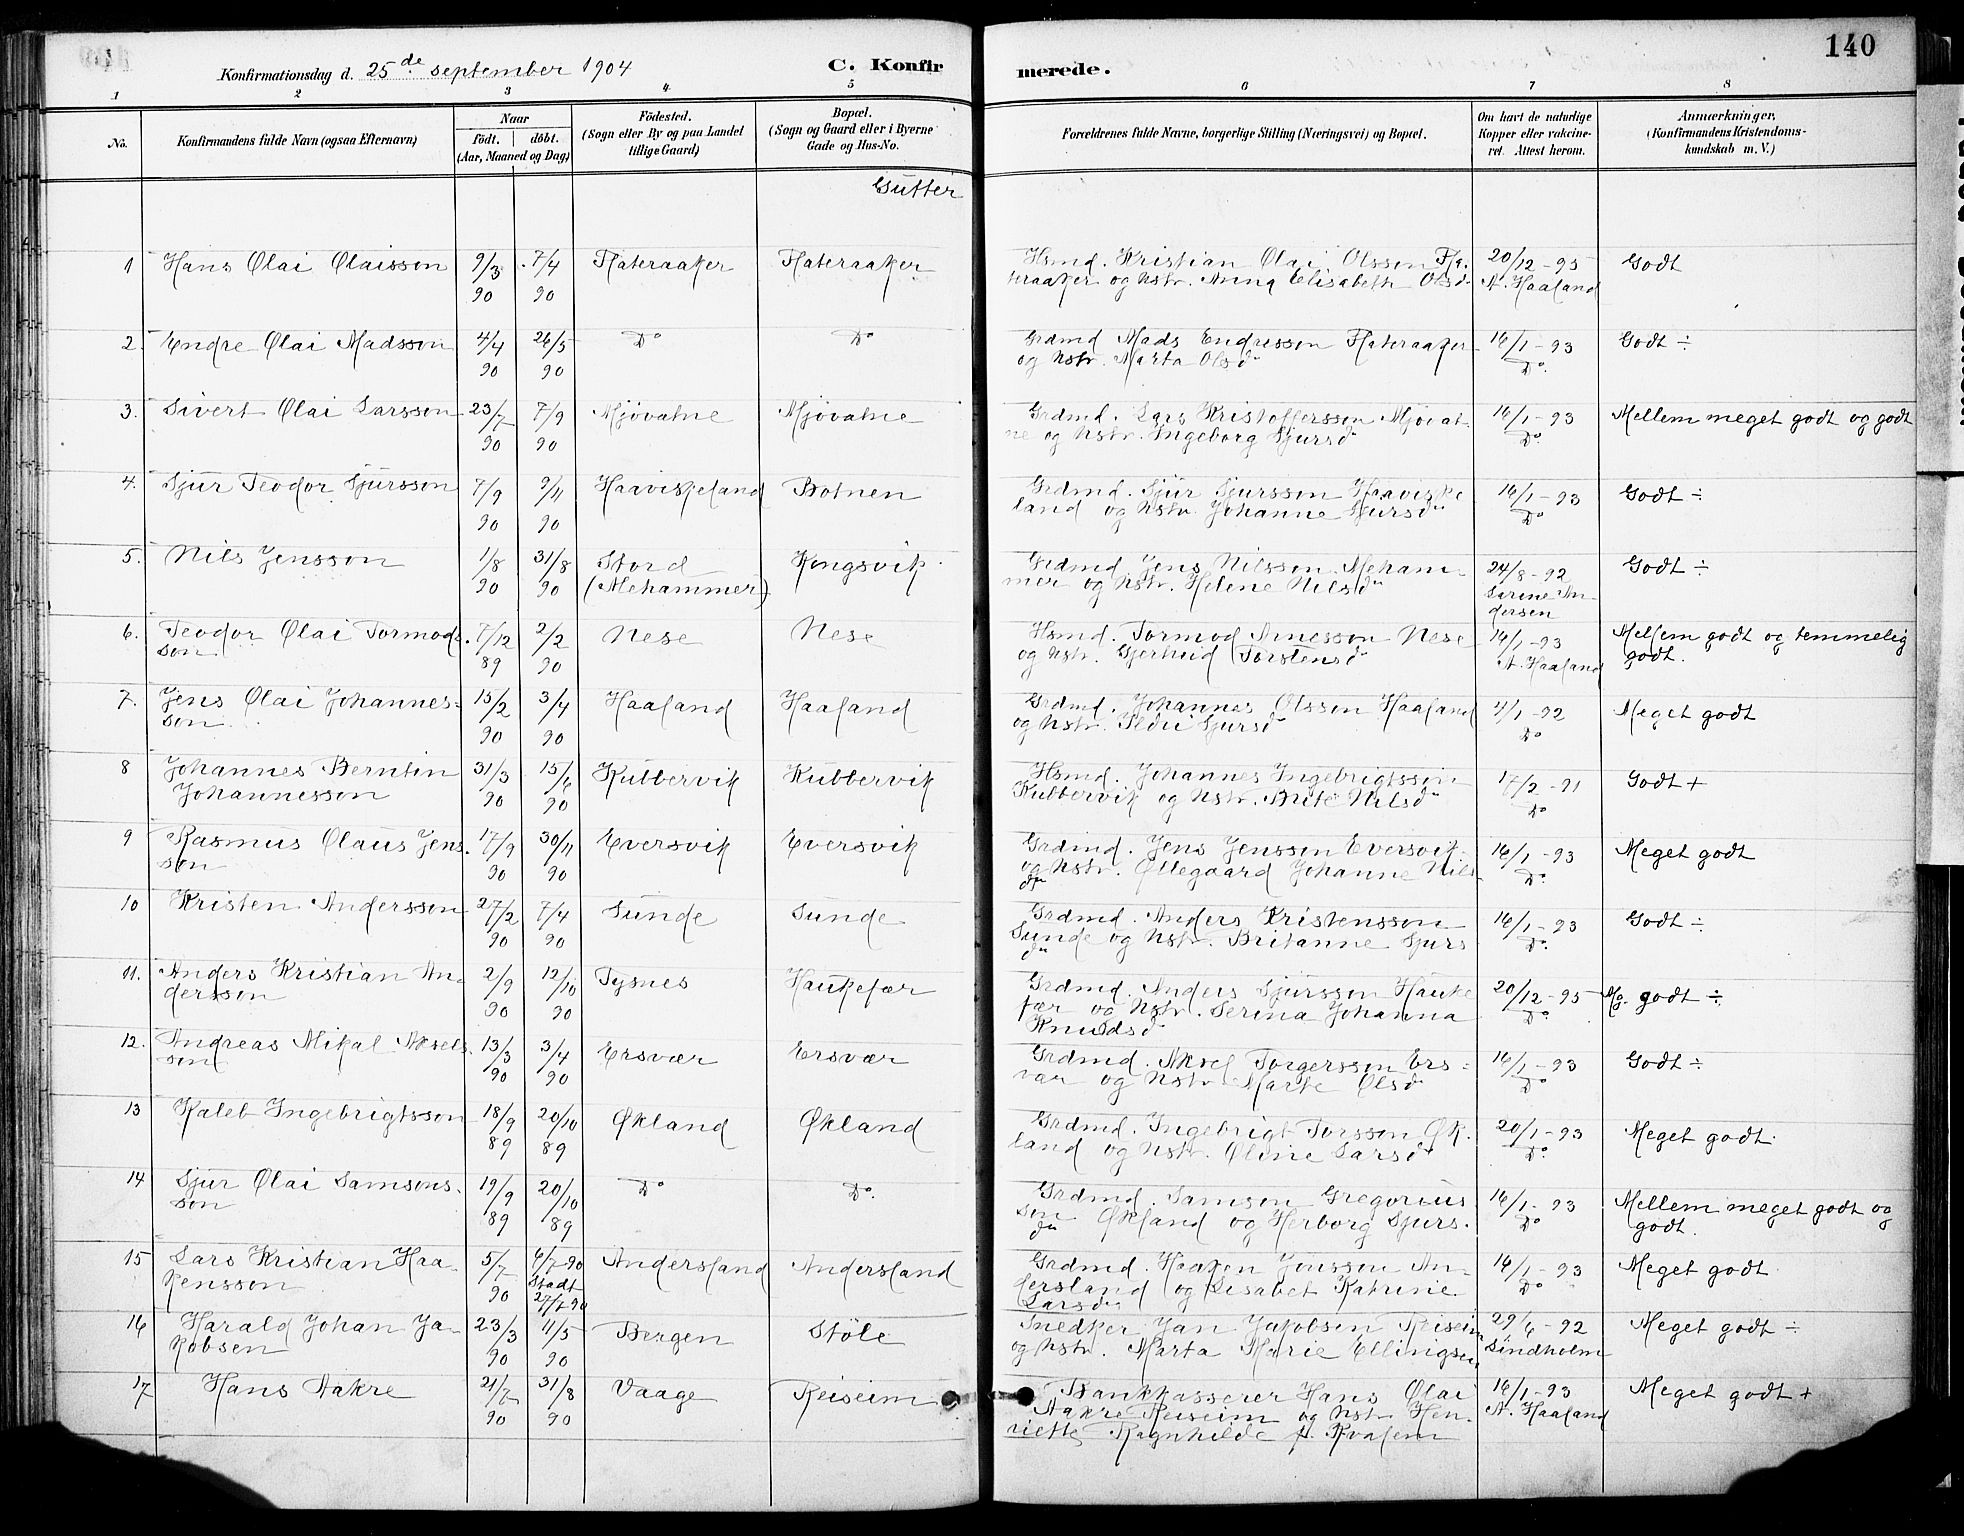 140
Konfirmationsdag d. 25de september 1904
C. Konfirmerede.
1 2 3 4 5 6 7 8
No.
Konfirmandens fulde Navn (ogsaa Efternavn)
Naar
födt. döbt.
(Aar, Maaned og Dag)
Födested.
(Sogn eller By og paa Landet
tillige Gaard)
Bopæl.
(Sogn og Gaard eller i Byerne
Gade og Hus-No.
Forældrenes fulde Navne, borgerlige Stilling (Næringsvei) og Bopæl.
Om havt de naturlige
Kopper eller vakcine-
ret. Attest herom.
Anmærkninger,
(Konfirmandens Kristendoms-
kundskab m. V.)
Gutter
1 Hans Olai Olaisson 9/3 90 7/4 90 Flateraaker Flateraaker Hsmd. Kristian Olai Olsson Fla-
teraaker og Hstr. Anna Elisabeth Olsd 20/12-95 A. Haaland Godt
2. Endre Olai Madsson 4/4 90 26/5 90 Do Do Grdmd Mads Endresson Flateraaker
og Hstr. Marta Olsd 16/1-93 Do. Godt ÷
3. Sivert Olai Larsson 23/7 90 7/9 90 Mjövatne Mjövatne Grdmd. Lars Kristoffersson Mjövat-
ne og Hstr. Ingeborg Sjursd 16/1-93 Do. Mellem meget godt og godt
4. Sjur Teodor Sjursson 7/9 90 9/11 90 Haaviskeland Botnen Grdmd. Sjur Sjursson Haaviske
land og Hstr. Johanne Sjursd 16/1-93 Do Godt ÷
5. Nils Jensson 1/8 90 31/8 90 Stord
(Mehammer) Kongsvik Grdmd Jens Nilsson Meham-
mer og Hstr. Helene Nilsd 24/8-92
Serine An-
dersen Godt ÷
6. Teodor Olai Tormods-
son 7/12 89 2/2 90 Nese Nese Hsmd. Tormod Arnesson Nese
og Hstr. Gjerthrud Torstensd 14/1-93
A. Haaland Mellem godt og temmelig
godt.
7. Jens Olai Johannes-
son 15/2 90 3/4 90 Haaland Haaland Grdmd. Johannes Olsson Haaland
og Hstr. Ildri Sjursd 4/1-92 Do Meget godt
8 Johannes Berntin
Johannesson 31/3 90 15/6 90 Kubbervik Kubbervik Hsmd. Johannes Ingebrigtsson
Kubbervik og Hstr. Brite Nilsd 17/2-91 Do Godt +
9 Rasmus Olaus Jens
son 17/9 90 30/11 90 Eversvik Eversvik Grdmd. Jens Jensson Eversvik
og Hstr. Ollegaard Johanne Nils-
dtr 16/1-93 Do. Meget godt
10 Kristen Andersson 27/2 90 7/4 90 Sunde Sunde Grdmd. Anders Kristensson
Sunde og Hstr. Britanne Sjurs
dtr 16/1-93 Do. Godt ÷
11. Anders Kristian An-
dersson 2/9 90 12/10 90 Tysnes Haukefær Grdmd. Anders Sjursson Hauke
fær og Hstr. Serina Johanna
Knudsd 20/12-95 Do. Mg. godt ÷
12. Andreas Mikal Aksels
son 13/3 90 3/4 90 Ersvær Ersvær Grdmd. Aksel Torgersson Ers-
vær og Hstr. Marte Olsd 16/1-93 Do Godt ÷
13 Kaleb Ingebrigtsson 18/9 89 20/10 89 Økland Økland Grdmd. Ingebrigt Torsson Øk-
land og Hstr. Oline Larsd 20/1-93 Do. Meget godt
14 Sjur Olai Samsons-
son 19/9 89 20/10 89 Do Do. Grdmd. Samson Gregorius
son Økland og Herborg Sjurs.
dtr 16/1-93 Do Mellem meget godt og
godt.
15 Lars Kristian Haa-
kensson 5/7 90 6/7-90
Stadf.
27/7-90 Andersland Andersland Grdmd. Haaken Jonsson An-
dersland og Lisabet Katrine
Larsd 16/1-93 Do Meget godt
16 Harald Johan Ja-
kobsen 23/3 90 11/5 90 Bergen Stöle Snedker Jan Jakobsen Reiseim
og Hstr. Marta Marie Ellingsen 29/6-92
Lindholm Meget godt ÷
17 Hans Aakre 21/7 90 31/8 90 Vaage Reiseim Bankkasserer Hans Olai
Aakre Reiseim og Hstr Hen-
riette Ragnhilde f. Kvalem 16/1-93
A. Haaland Meget godt +